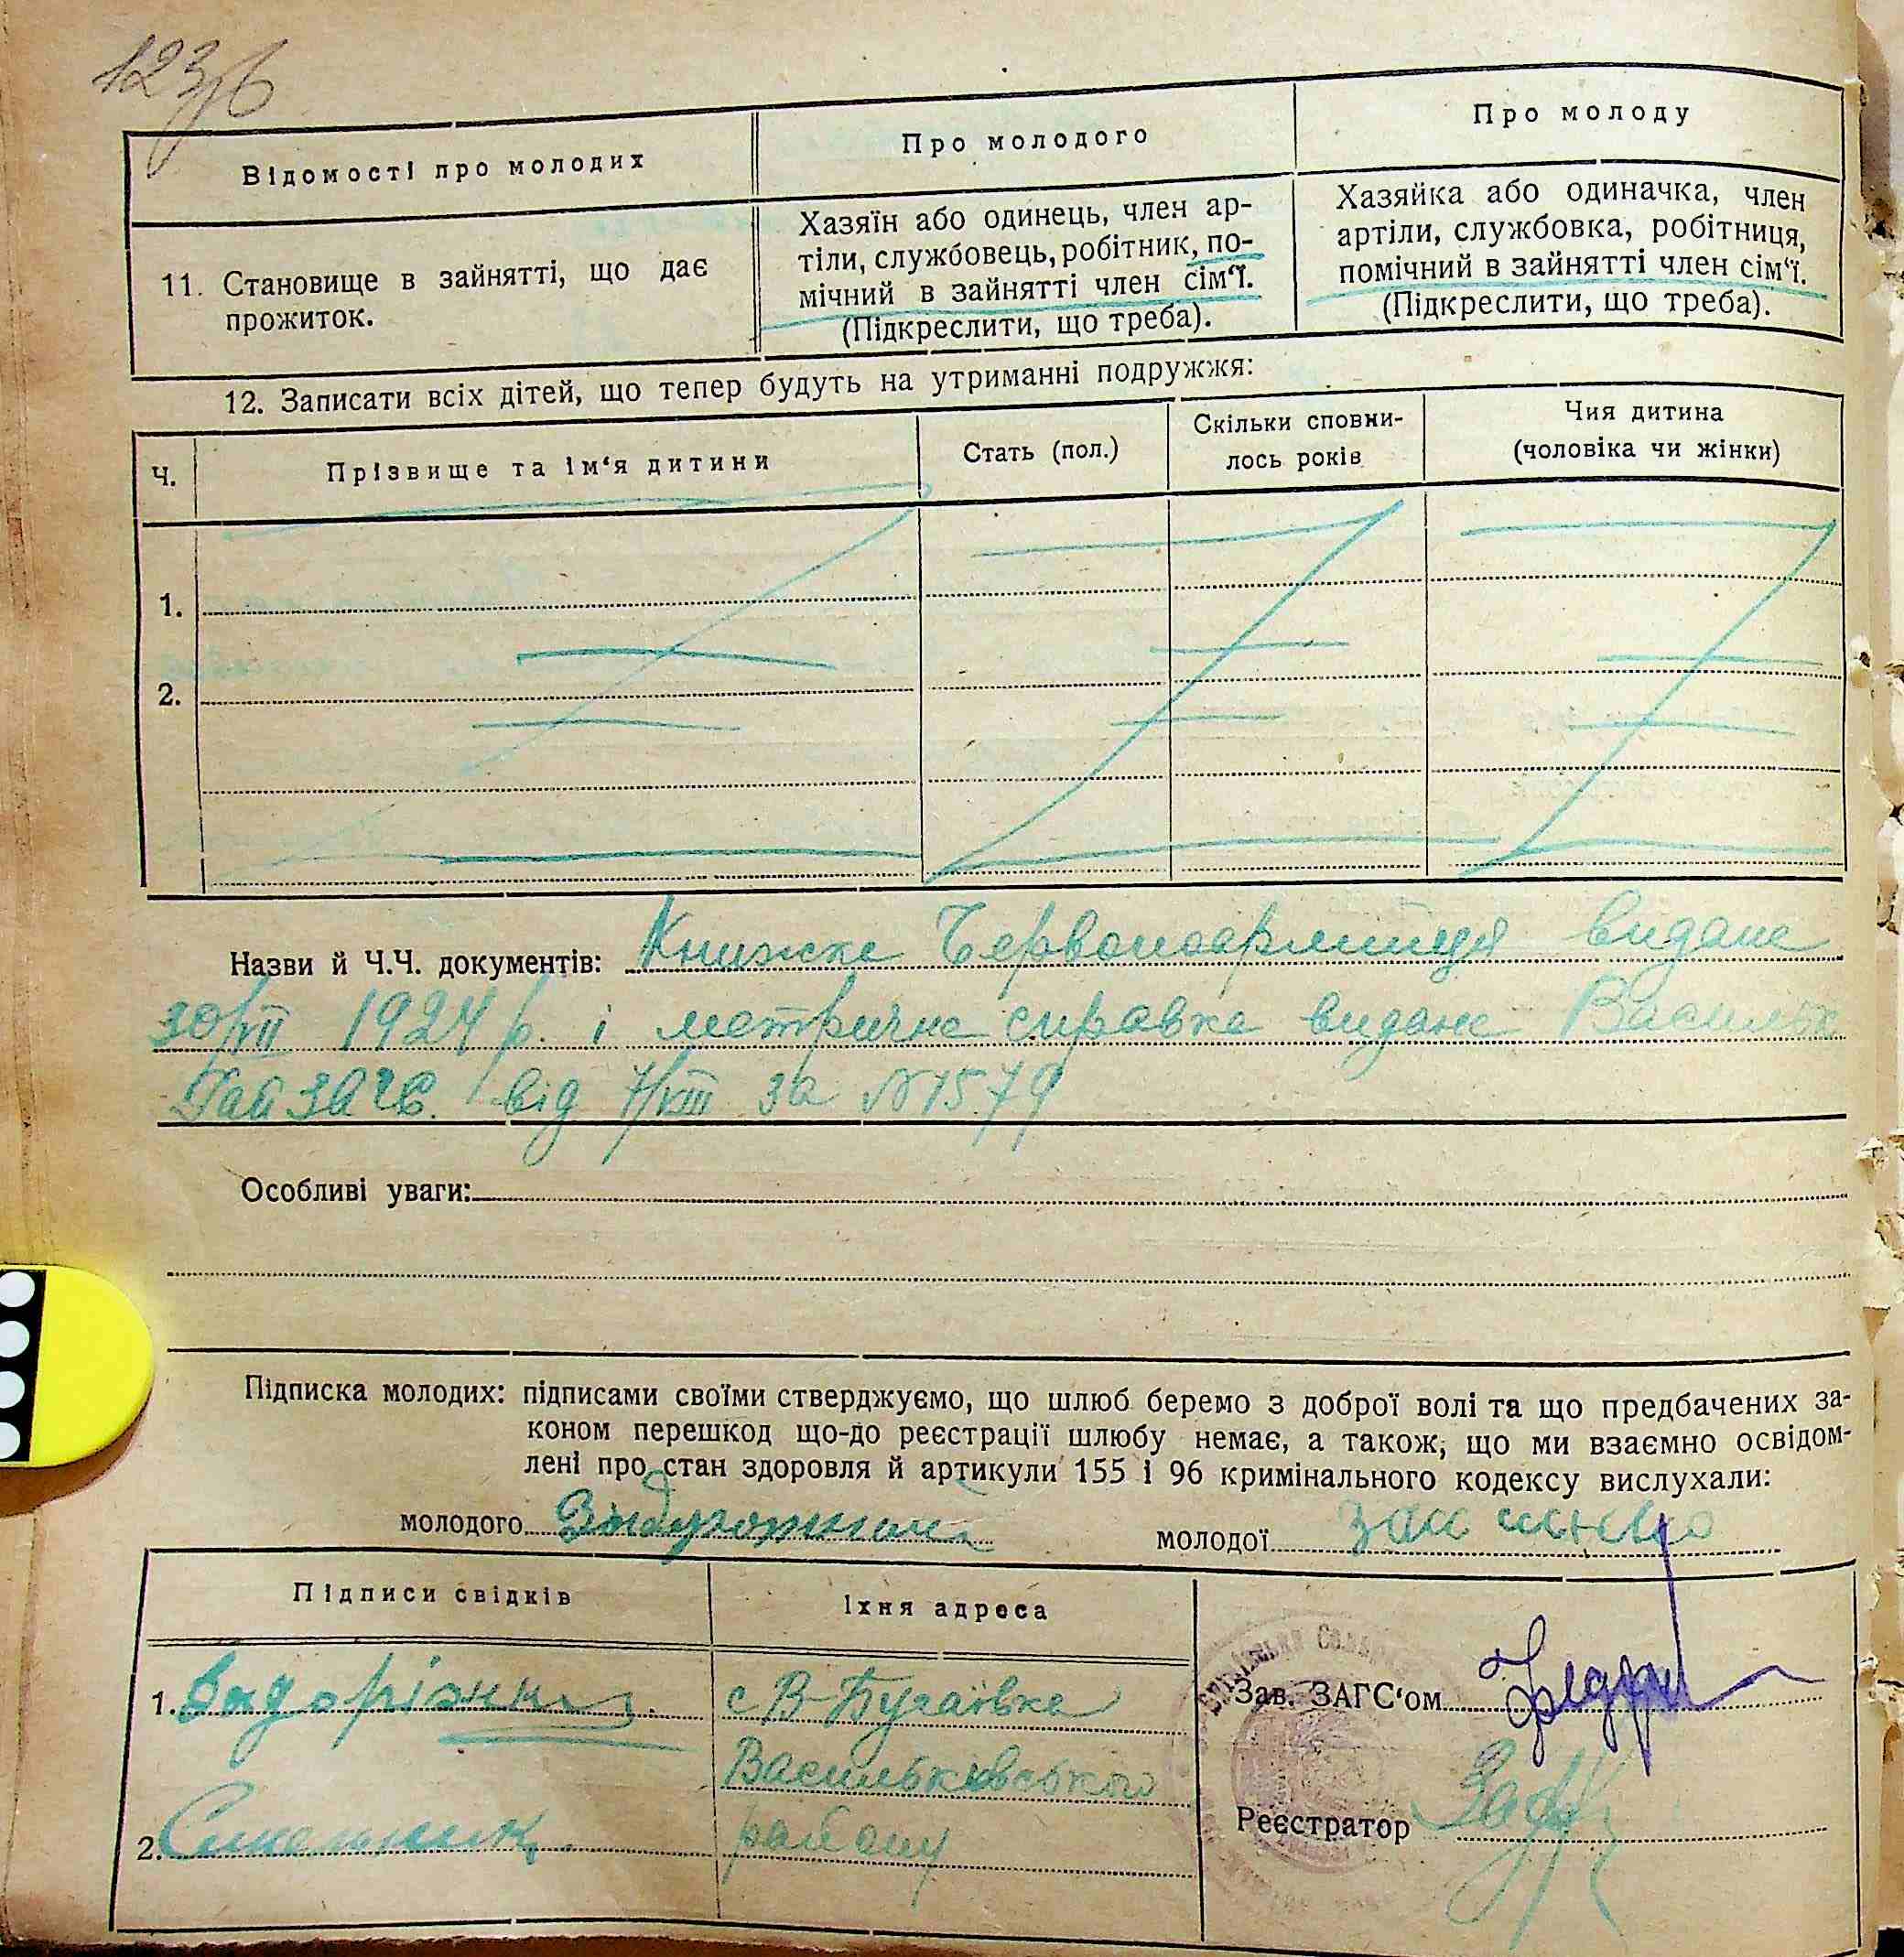 123/в
Відомості про молодих
Про молодого
Про молоду
11. Становище в зайнятті, що дає
прожиток.
Хазяїн або одинець, член ар-
тіли, службовець, робітник, по-
мічний в зайнятті член сім‘ї.
(Підкреслити, що треба).
Хазяйка або одиначка, член
артіли, службовка, робітниця,
помічний в зайнятті член сім‘ї.
(Підкреслити, що треба).
12. Записати всіх дітей, що тепер будуть на утриманні подружжя:
Ч.
Прізвище та ім‘я дитини
Стать (пол.)
Скільки сповни-
лось років
Чия дитина
(чоловіка чи жінки)
1.
2.
Назви й Ч.Ч. документів: Книжка Червоноармійця видана
30/VII 1924 р. і метрична справка видана Васильк
Рай ЗАГС. від 7/VIII за №1579
Особливі уваги:
Підписка молодих: підписами своїми стверджуємо, що шлюб беремо з доброї волі та що предбачених за-
коном перешкод що-до реєстрації шлюбу немає, а також, що ми взаємно освідом-
лені про стан здоровля й артикули 155 і 96 кримінального кодексу вислухали:
молодого
молодої
Підписи свідків
Їхня адреса
1.
с В-Бугаївка
Васильківського
2.
району
Зав. ЗАГС‘ом
Реєстратор